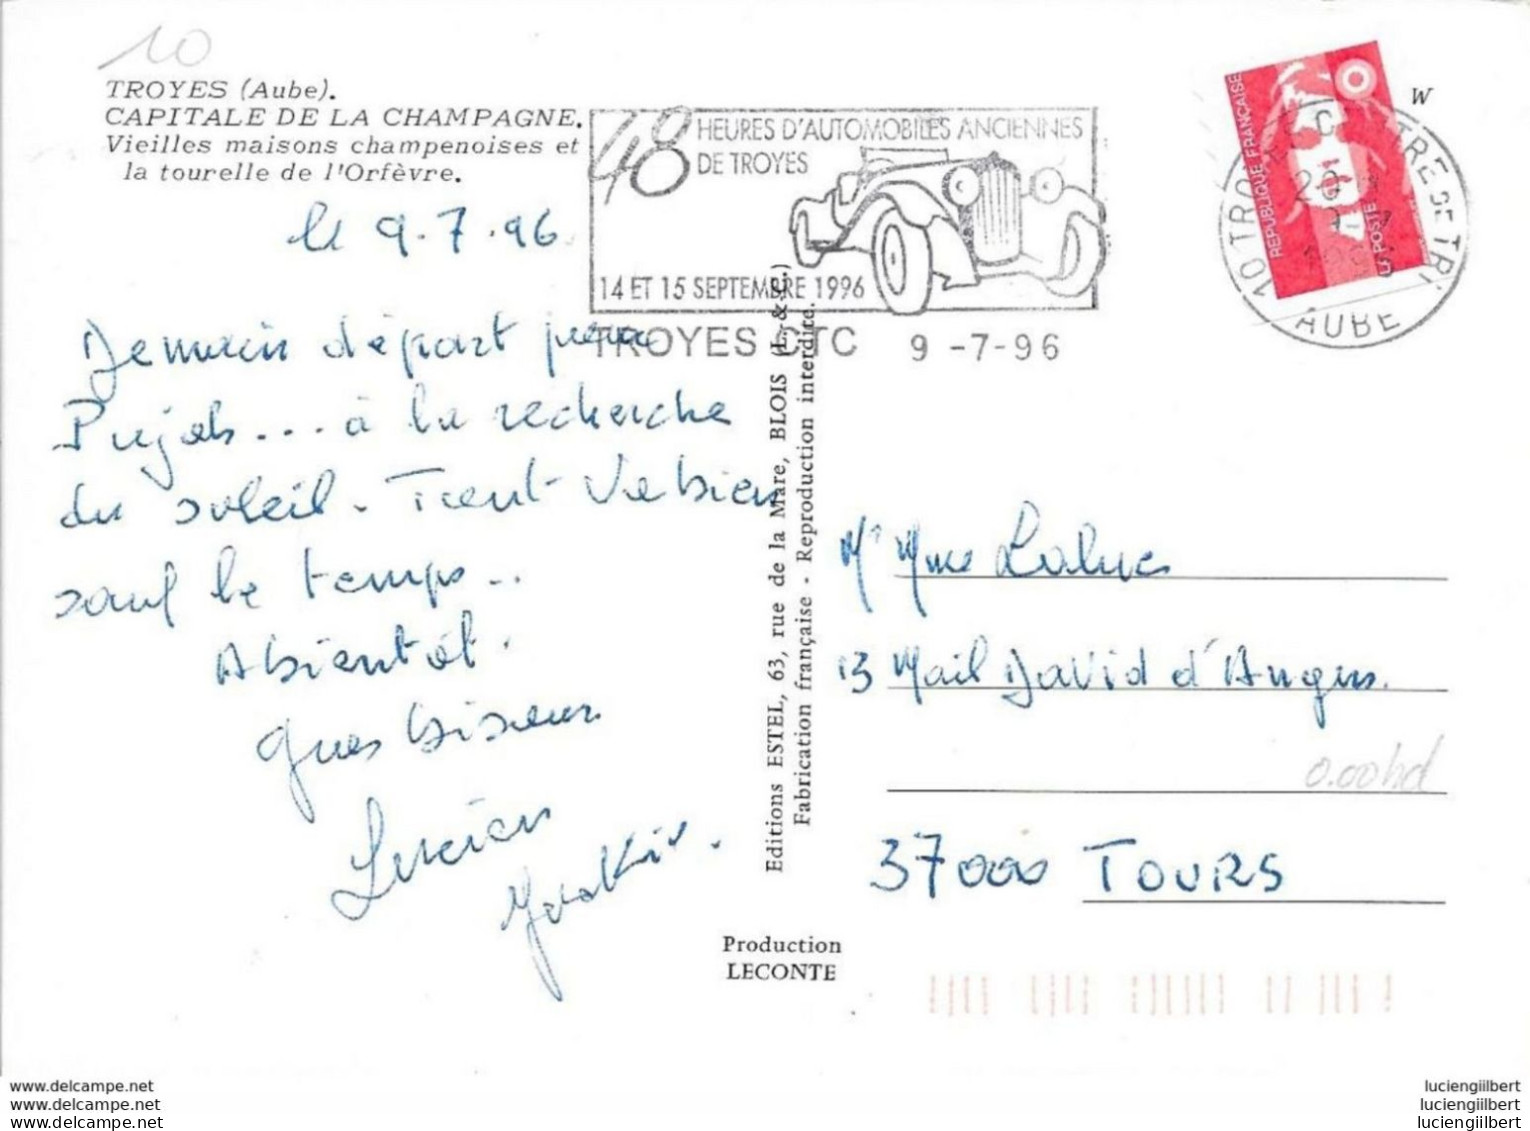 10
TROYES (Aube).
CAPITALE DE LA CHAMPAGNE.
Vieilles maisons champenoises et
la tourelle de l'Orfèvre.
le 9.7.96
Demain départ pour
Pujols... à la recherche
du soleil. Tout va bien
sauf le temps..
A bientôt.
Gues biseus
Lucien
48 HEURES D'AUTOMOBILES ANCIENNES
DE TROYES
14 ET 15 SEPTEMBRE 1996
TROYES CTC 9 -7-96
REPUBLIQUE FRANÇAISE
LA POSTE
W
10 TROYES CTC CENTRE DE TRI
AUBE
Editions ESTEL, 63, rue de la Mare, BLOIS (L.-&-C.)
Fabrication française - Reproduction interdite.
Mr Mme Laluc
13 Mail David d'Angers.
0.00hd
37000 TOURS
Production
LECONTE
www.delcampe.net
www.delcampe.net
www.delcampe.net
luciengilbert
luciengilbert
luciengilbert